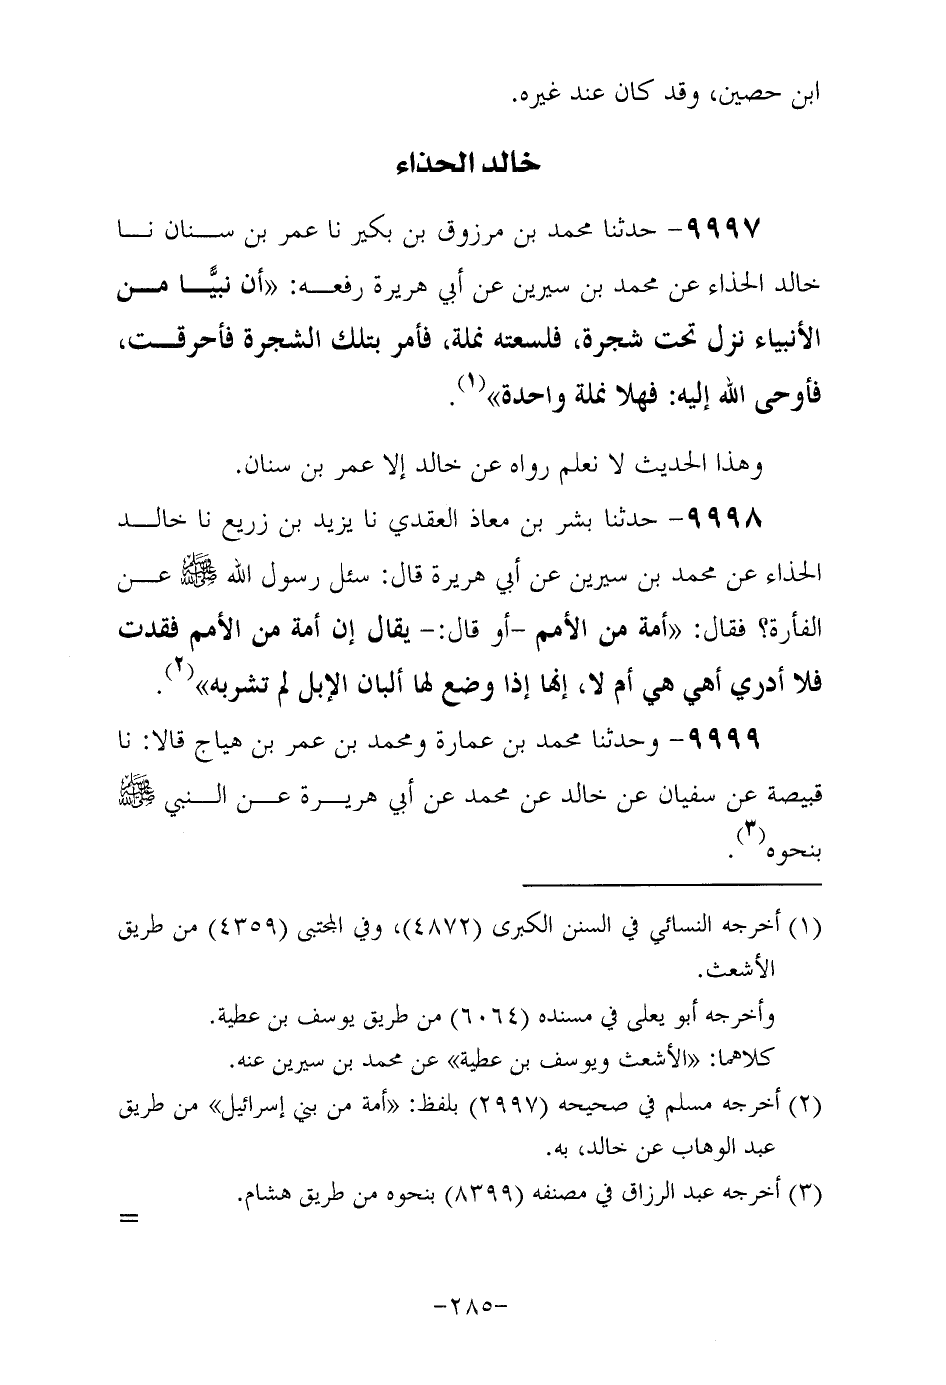 ابن حصين، وقد كان عند غيره.
خالد الحذاء
٩٩٩٧- حدثنا محمد بن مرزوق بن بكير نا عمر بن سنان نا
خالد الحذاء عن محمد بن سيرين عن أبي هريرة رفعه: «أن نبيًّا من
الأنبياء نزل تحت شجرة، فلسعته نملة، فأمر بتلك الشجرة فأحرقت،
فأوحى الله إليه: فهلا نملة واحدة»(١).
وهذا الحديث لا نعلم رواه عن خالد إلا عمر بن سنان.
٩٩٩٨- حدثنا بشر بن معاذ العقدي نا يزيد بن زريع نا خالد
الحذاء عن محمد بن سيرين عن أبي هريرة قال: سئل رسول الله ﷺ عن
الفأرة؟ فقال: «أمة من الأمم -أو قال:- يقال إن أمة من الأمم فقدت
فلا أدري أهي هي أم لا، إنها إذا وضع لها ألبان الإبل لم تشربه»(٢).
٩٩٩٩- وحدثنا محمد بن عمارة ومحمد بن عمر بن هياج قالا: نا
قبيصة عن سفيان عن خالد عن محمد عن أبي هريرة عن النبي ﷺ
بنحوه(٣).
(١) أخرجه النسائي في السنن الكبرى (٤٨٧٢)، وفي المجتبى (٤٣٥٩) من طريق
الأشعث.
وأخرجه أبو يعلى في مسنده (٦٠٦٤) من طريق يوسف بن عطية.
كلاهما: «الأشعث ويوسف بن عطية» عن محمد بن سيرين عنه.
(٢) أخرجه مسلم في صحيحه (٢٩٩٧) بلفظ: «أمة من بني إسرائيل» من طريق
عبد الوهاب عن خالد، به.
(٣) أخرجه عبد الرزاق في مصنفه (٨٣٩٩) بنحوه من طريق هشام.
=
-٢٨٥-